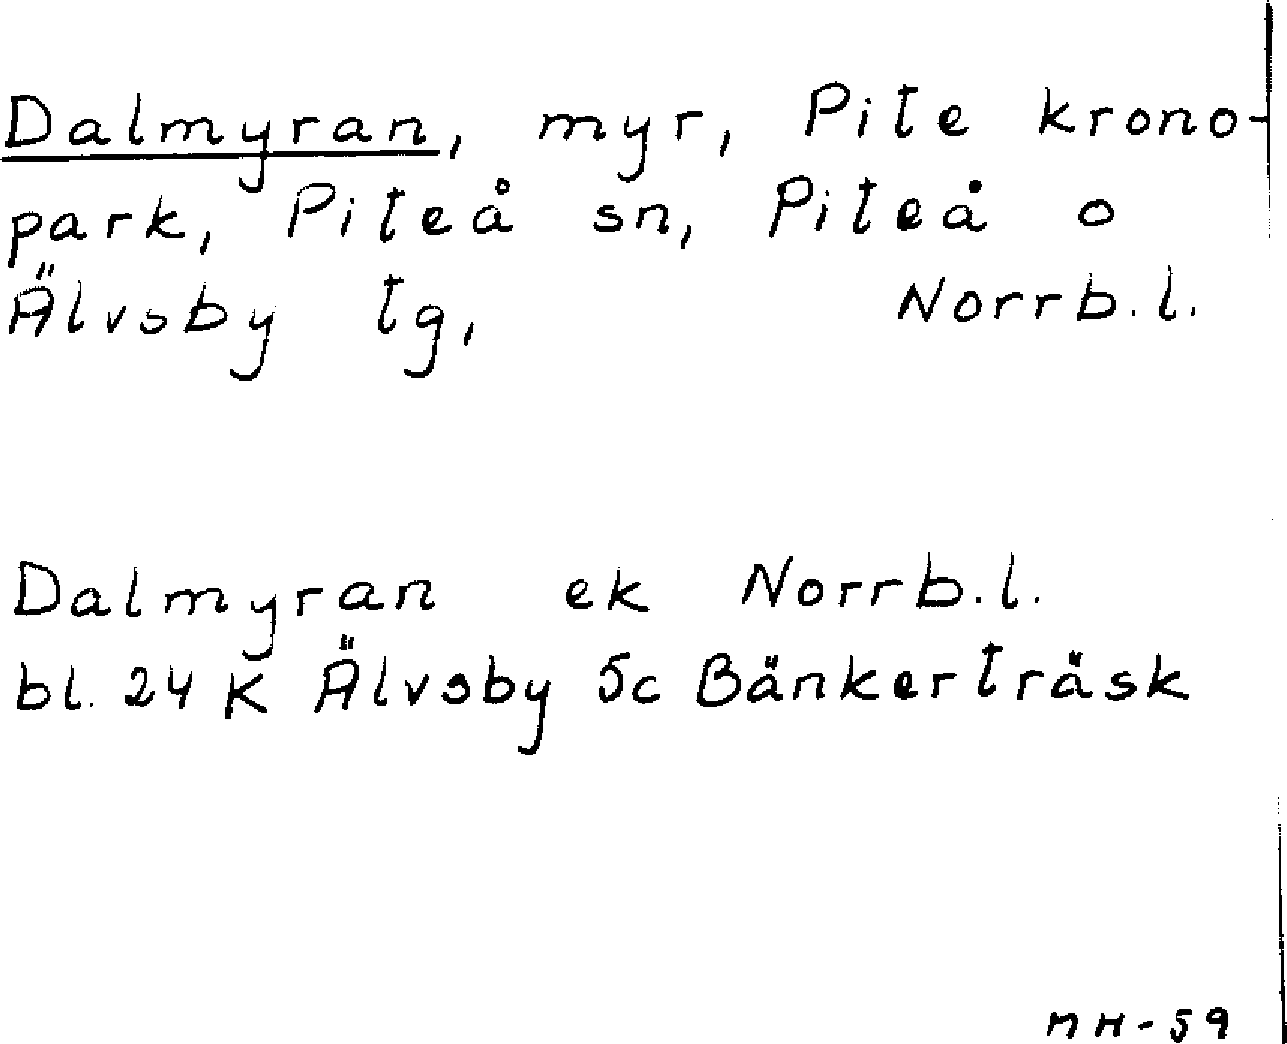 Dalmyran, myr, Pite krono-
park, Piteå sn, Piteå o
Älvsby tg, Norrb.l.
Dalmyran ek Norrb.l.
bl. 24 K Älvsby 5c Bänkerträsk
MH-59